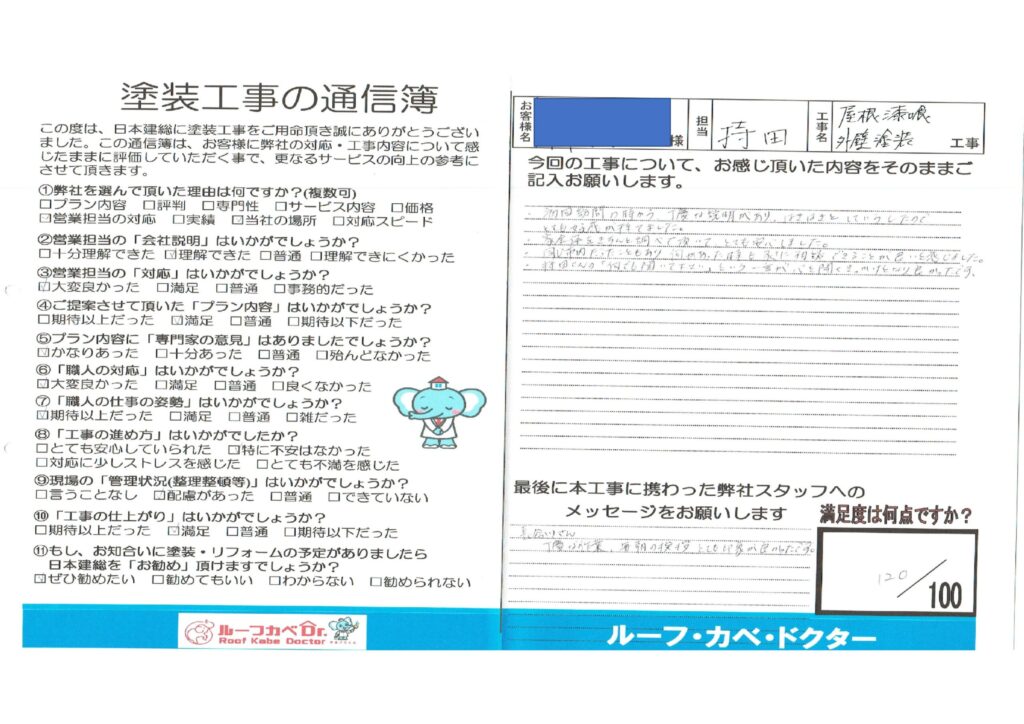 塗装工事の通信簿
この度は、日本建総に塗装工事をご用命頂き誠にありがとうござい
ました。この通信簿は、お客様に弊社の対応・工事内容について感
じたままに評価していただく事で、更なるサービスの向上の参考に
させて頂きます。
①弊社を選んで頂いた理由は何ですか？(複数可)
□プラン内容 □評判 □専門性 □サービス内容 □価格
☑営業担当の対応 □実績 ☑当社の場所 □対応スピード
②営業担当の「会社説明」はいかがでしょうか？
□十分理解できた ☑理解できた □普通 □理解できにくかった
③営業担当の「対応」はいかがでしょうか？
☑大変良かった □満足 □普通 □事務的だった
④ご提案させて頂いた「プラン内容」はいかがでしょうか？
□期待以上だった ☑満足 □普通 □期待以下だった
⑤プラン内容に「専門家の意見」はありましたでしょうか？
☑かなりあった □十分あった □普通 □殆んどなかった
⑥「職人の対応」はいかがでしょうか？
☑大変良かった □満足 □普通 □良くなかった
⑦「職人の仕事の姿勢」はいかがでしょうか？
☑期待以上だった □満足 □普通 □雑だった
⑧「工事の進め方」はいかがでしたか？
□とても安心していられた ☑特に不安はなかった
□対応に少しストレスを感じた □とても不満を感じた
⑨現場の「管理状況(整理整頓等)」はいかがでしょうか？
□言うことなし ☑配慮があった □普通 □できていない
⑩「工事の仕上がり」はいかがでしょうか？
□期待以上だった ☑満足 □普通 □期待以下だった
⑪もし、お知合いに塗装・リフォームの予定がありましたら
日本建総を「お勧め」頂けますでしょうか？
☑ぜひ勧めたい □勧めてもいい □わからない □勧められない
ルーフカベDr.
Roof Kabe Doctor
お客様名 様 担当 持田 工事名 屋根漆喰
外壁塗装 工事
今回の工事について、お感じ頂いた内容をそのままご
記入お願いします。
・初回訪問の時から、丁寧な説明があり、はきはきと
とても好感が持てました。
とても安心しました。
最後に本工事に携わった弊社スタッフへの
メッセージをお願いします
満足度は何点ですか？
丁寧な作業、毎朝の挨拶
120／100
ルーフ・カベ・ドクター